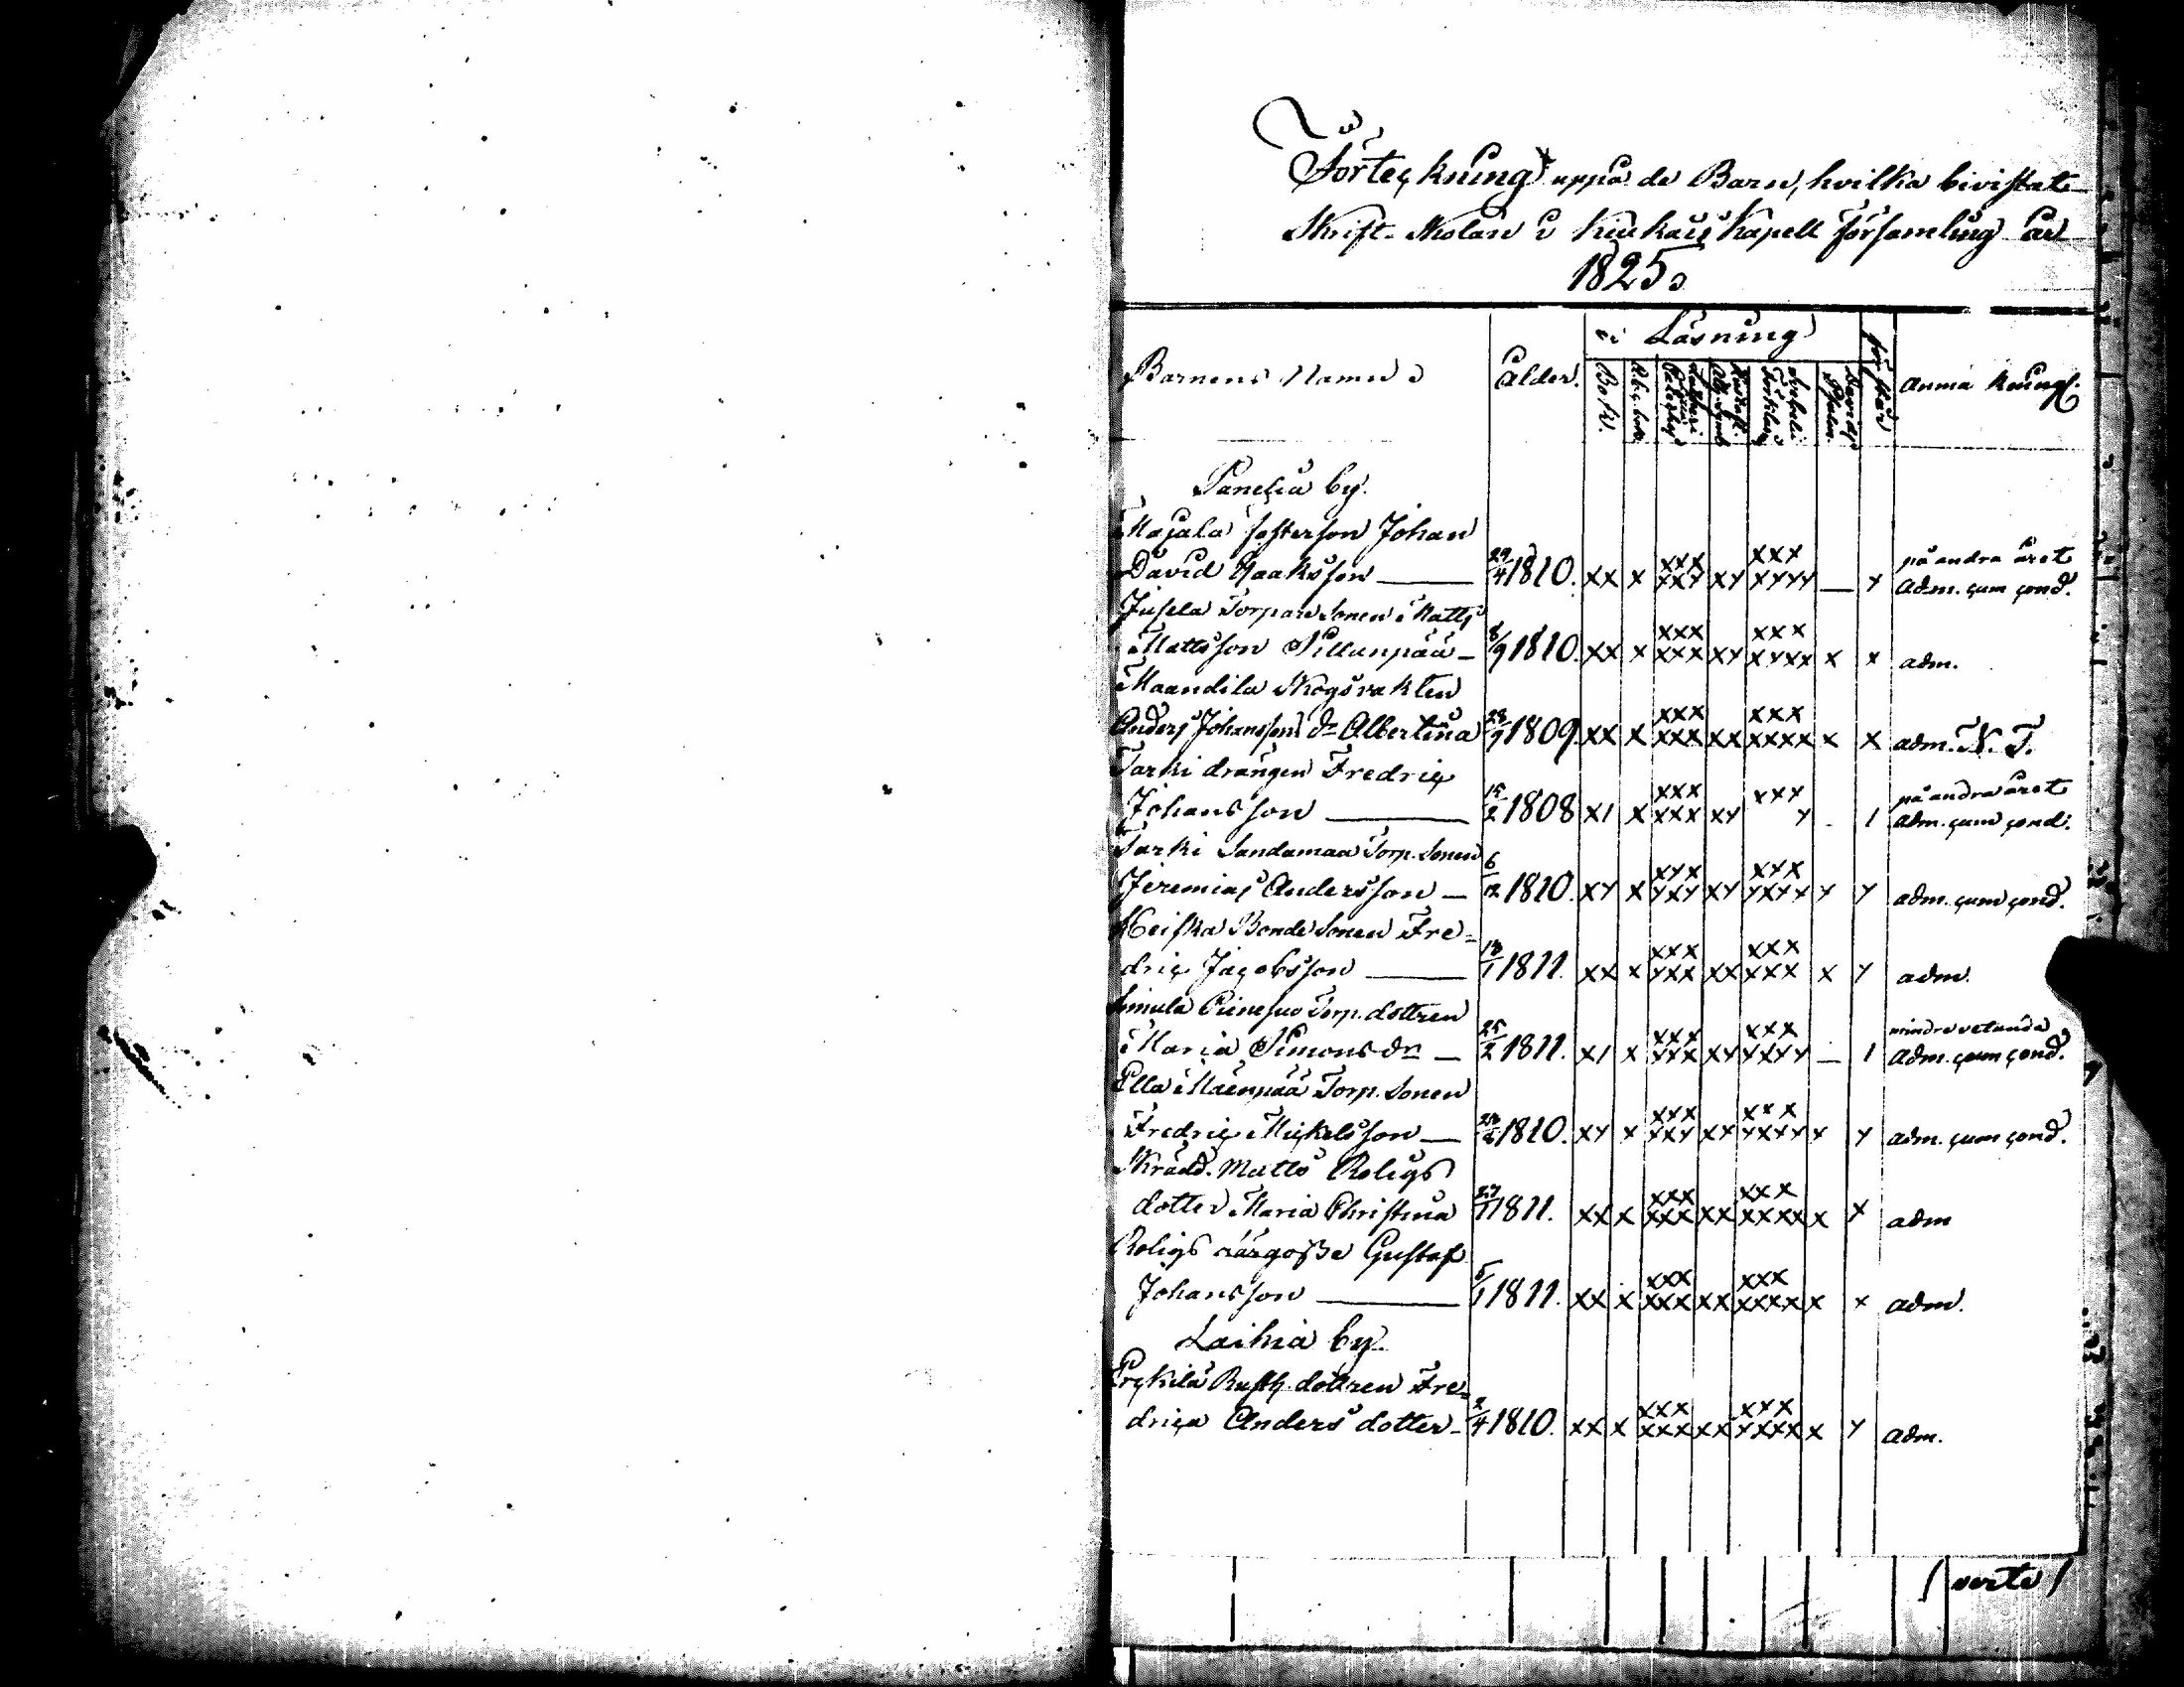 Förteckning uppå de Barn, hvilka bivistat
Skrift-Skolan i Kiukais Kapell Församling år
1825
Barnens Namn Ålder. i Läsning förstår Anmärkning.
Bok. Abc bok Davids Psalm.
Panelia by.
Majala Systerson Johan
David Isaaksson 29/4 1810. xx x xxx xxy xy xxx xyyy — y på andra året adm. cum cond.
Jusela Torpare Sonen Matts
Mattsson Sillanpää 8/9 1810. xx x xxx xxx xy xxx xyxx x x adm.
Maandila Skogsvakten
Anders Johanssons dr Albertina 28/9 1809. xx x xxx xxx xx xxx xxxx x x adm. N. T.
Tarki drängen Fredric
Johansson 15/2 1808 x1 x xxx xxx xy xxy y - 1 på andra året adm. cum cond.
Tarki Sandamaa Torp. Sonen
Jeremias Andersson 6/12 1810. xy x xyx yxy xy xyx yxyx y y adm. cum cond.
Heiska Bonde Sonen Fre-
dric Jacobsson 18/1 1811. xx x xxx yxx xx xxx xxx x y adm.
Simula Torp. dottren
Maria Simonsdr 25/2 1811. x1 x xxx yyx xy xxx yxyy — 1 mindre vetande adm. cum cond.
Ella Mäenpää Torp. Sonen
Fredric Mickelsson 1810. xy x xyx yxy xy xxx yxyy y y adm. cum cond.
Skrädd. Matts Roligs
dotter Maria Christina 27/1 1811. xx x xxx xxx xx xxx xxxx x x adm
Roligs Gustaf
Johansson 5/1 1811. xx x xxx xxx xx xxx xxxx x x adm.
Laihia by.
Erckilä Rusth. dottren Fre-
drica Andersdotter 2/4 1810. xx x xxx xxx xx xxx yxxx x y adm.
/ verte /